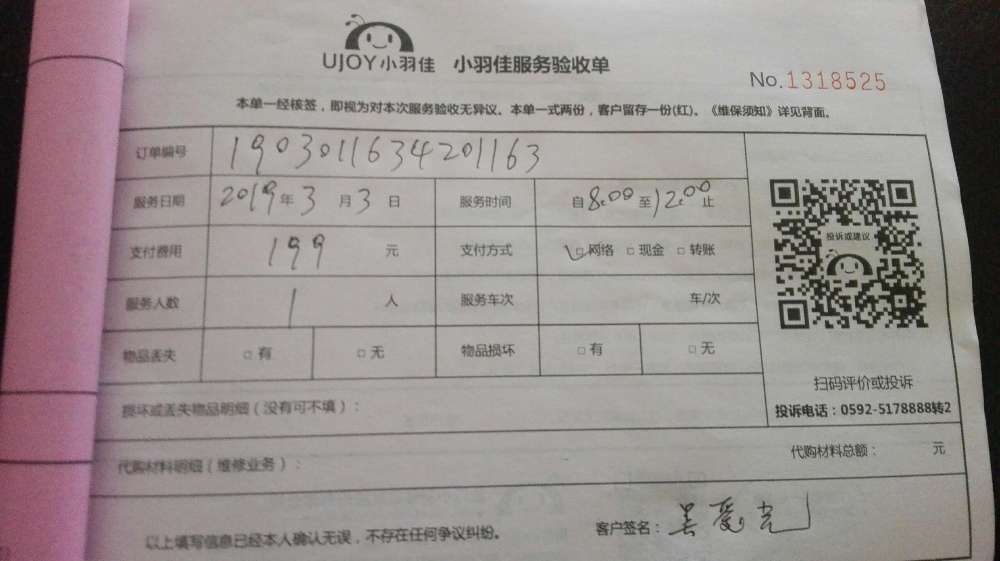 UJOY小羽佳 小羽佳服务验收单
No.1318525
本单一经核签，即视为对本次服务验收无异议。本单一式两份，客户留存一份(红)、《维保须知》详见背面。
订单编号 1903011634201163
服务日期 2019年3月3日 服务时间 自8:00至12:00止
投诉或建议
支付费用 199 元 支付方式 ☑网络 □现金 □转账
服务人数 1 人 服务车次 车/次
物品丢失 □有 □无 物品损坏 □有 □无
扫码评价或投诉
投诉电话：0592-5178888转2
损坏或丢失物品明细（没有可不填）：
代购材料明细（维修业务）： 代购材料总额： 元
以上填写信息已经本人确认无误，不存在任何争议纠纷。 客户签名：吴爱